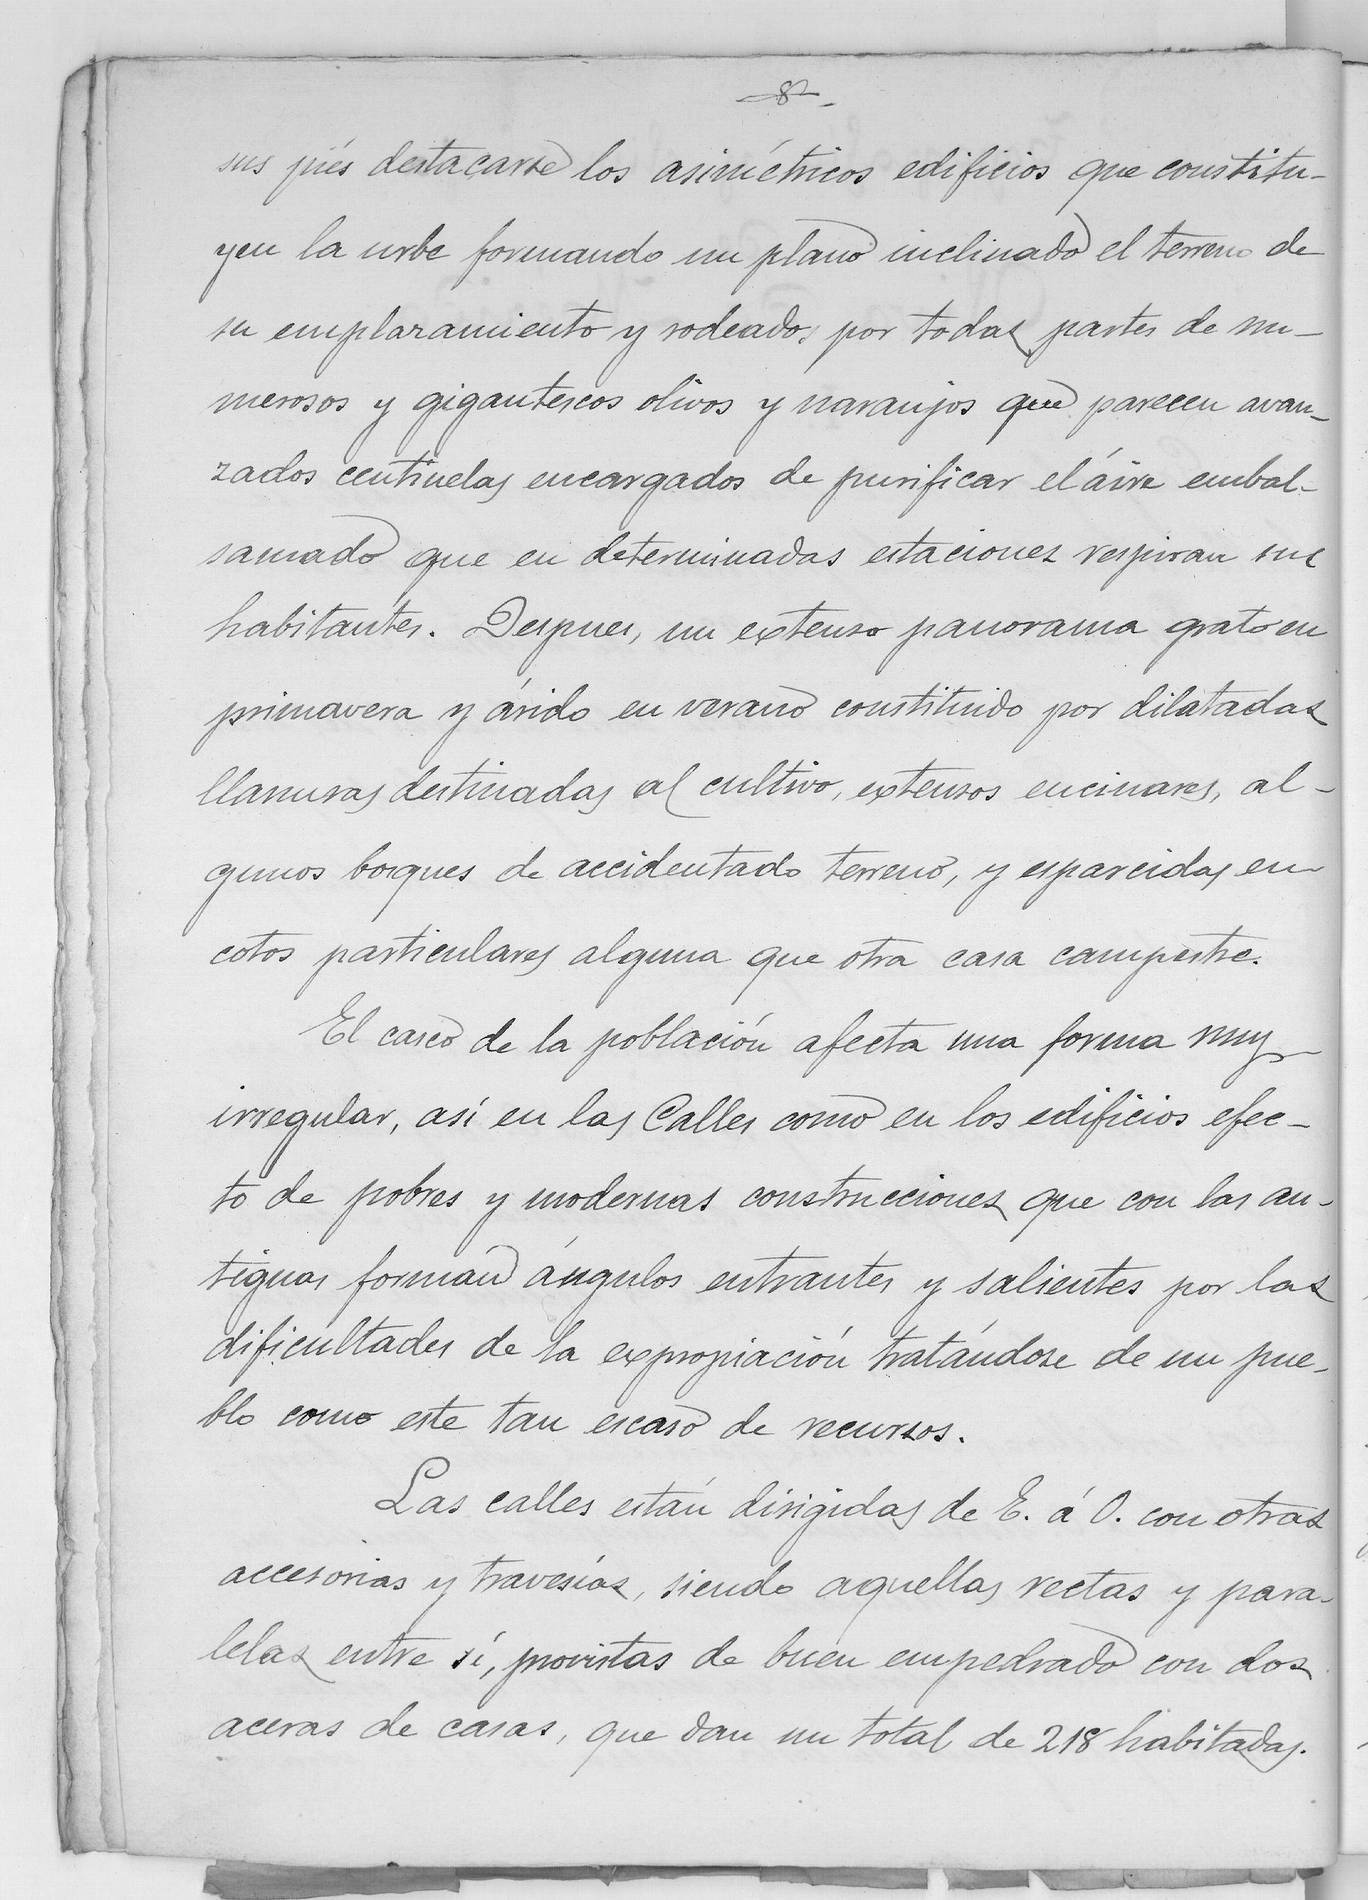 -8-
sus piés destacarse los asimétricos edificios que constitu-
yen la urbe formando un plano inclinado el terreno de
su emplazamiento y rodeados por todas partes de nu-
merosos y gigantescos olivos y naranjos que parecen avan-
zados centinelas encargados de purificar el áire embal-
samado que en determinadas estaciones respiran sus
habitantes. Despues, un extenso panorama grato en
primavera y árido en verano constituido por dilatadas
llanuras destinadas al cultivo, extensos encinares, al-
gunos bosques de accidentado terreno, y esparcidas en
cotos particulares alguna que otra casa campestre.
El casco de la población afecta una forma muy
irregular, así en las Calles como en los edificios efec-
to de pobres y modernas construcciones que con las an-
tiguas forman ángulos entrantes y salientes por las
dificultades de la expropiación tratándose de un pue-
blo como este tan escaso de recursos.
Las calles están dirigidas de E. á O. con otras
accesorias y travesías, siendo aquellas rectas y para-
lelas entre sí, provistas de buen empedrado con dos
aceras de casas, que dan un total de 218 habitadas.